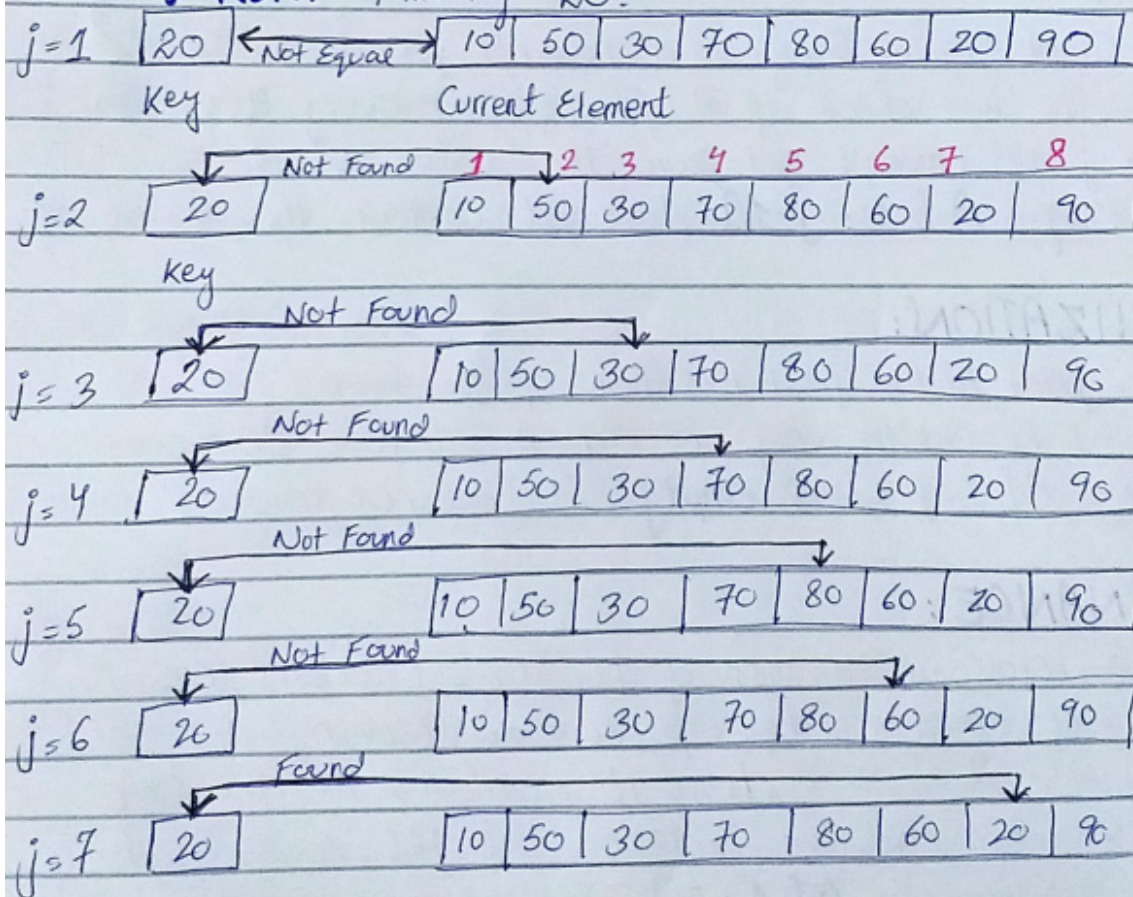 j=1 20 Not Equal 10 50 30 70 80 60 20 90
Key Current Element
Not Found 1 2 3 4 5 6 7 8
j=2 20 10 50 30 70 80 60 20 90
Key
Not Found
j=3 20 10 50 30 70 80 60 20 90
Not Found
j=4 20 10 50 30 70 80 60 20 90
Not Found
j=5 20 10 50 30 70 80 60 20 90
Not Found
j=6 20 10 50 30 70 80 60 20 90
Found
j=7 20 10 50 30 70 80 60 20 90